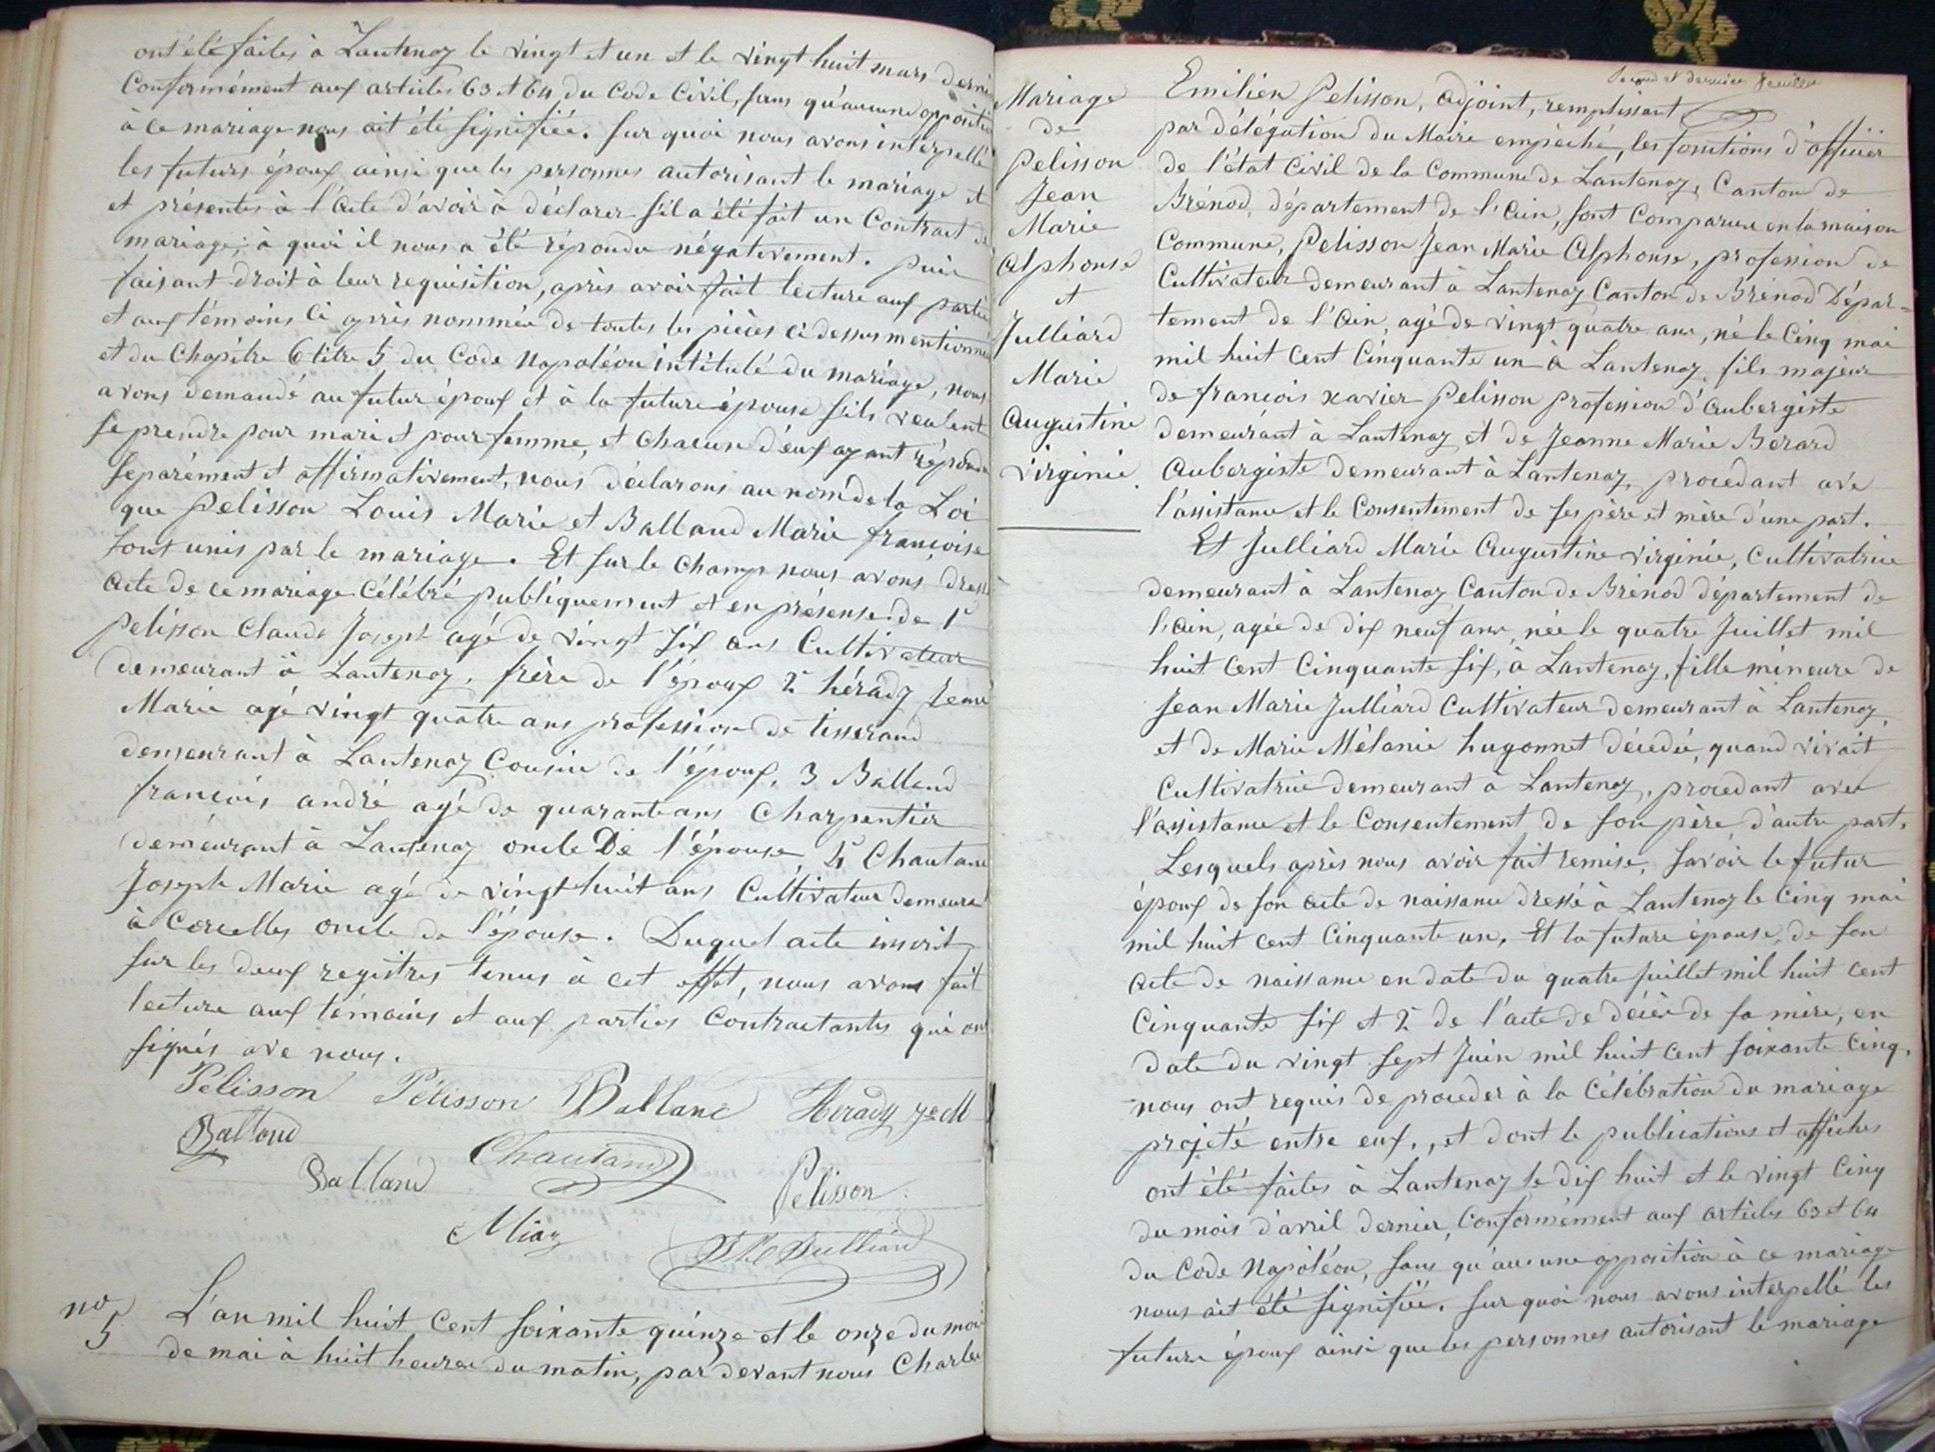 ont été faites à Lantenay le vingt et un et le vingt huit mars derni
Conformément aux articles 63 et 64 du Code Civil, sans qu'aucune oppositi
à ce mariage nous ait été signifiée. Sur quoi nous avons interpellé
les futurs époux ainsi que les personnes autorisant le mariage et
et présentes à l'acte d'avoir à déclarer s'il a été fait un Contract de
mariage; à quoi il nous a été répondu négativement. puis
faisant droit à leur requisition, après avoir fait lecture aux partie
et aux témoins ci après nommés de toutes les pièces ci dessus mentionné
et du Chapitre 6 titre 5 du Code Napoléon intitulé du mariage, nous
avons demandé au futur époux et à la future épouse s'ils veulent
se prendre pour mari et pour femme, et chacun d'eux ayant répondu
separément et affirmativement, nous déclarons au nom de la Loi
que Pelisson Louis Marie et Balland Marie françoise
sont unis par le mariage. Et sur le champ nous avons dressé
acte de ce mariage célébré publiquement et en présense de 1°
Pelisson Claude Joseph agé de vingt six ans Cultivateur
demeurant à Lantenay, frère de l'époux 2° hérady Jean
Marie agé vingt quatre ans profession de tisserand
demeurant à Lantenay Cousin de l'époux, 3 Balland
françois andré agé de quarante ans Charpentier
demeurant à Lantenay oncle De l'épouse, 4° Chautard
Joseph Marie agé de vingt huit ans Cultivateur demeura
à Corcelles oncle de l'épouse. Duquel acte inscrit
sur les deux registres tenus à cet effet, nous avons fait
lecture aux témoins et aux parties Contractantes qui ont
signés ave nous.
Pelisson Pélisson Balland Herady Je M
Balland
Balland Chautard Pélisson
Miay
Julliard
no 5 L'an mil huit Cent soixante quinze et le onze du mois
de mai à huit heures du matin, par devant nous Charles
Mariage
de
Pelisson
Jean
Marie
Alphonse
et
Julliard
Marie
Augustine
Virginie.
Second et dernier feuillet
Emilien Pelisson, adjoint, remplissant
par délégation du Maire empêché, les fonctions d'officier
de l'état Civil de la Commune de Lantenay, Canton de
Brénod, département de l'ain, sont Comparus en la maison
Commune, Pelisson Jean Marie Alphonse, profession de
Cultivateur demeurant à Lantenay Canton de Brénod Dépar-
tement de l'ain, agé de vingt quatre ans, né le Cinq mai
mil huit Cent Cinquante un à Lantenay, fils majeur
de françois xavier Pelisson profession d'aubergiste
demeurant à Lantenay, et de Jeanne Marie Berard
aubergiste demeurant à Lantenay, procedant ave
l'assistance et le Consentement de ses père et mère d'une part.
Et Julliard Marie Augustine Virginie, Cultivatrice
demeurant à Lantenay Canton de Brénod département de
l'ain, agée de dix neuf ans, née le quatre Juillet mil
huit Cent Cinquante six, à Lantenay, fille mineure de
Jean Marie Julliard Cultivateur demeurant à Lantenay
et de Marie Mélanie hugonnet décedée, quand vivait
Cultivatrice demeurant à Lantenay, procedant avec
l'assistance et le Consentement de son père, d'autre part.
Lesquels après nous avoir fait remise, Savoir le futur
époux de son acte de naissance dressé à Lantenay le Cinq mai
mil huit cent Cinquante un, Et la future épouse, de son
acte de naissance en date du quatre juillet mil huit cent
Cinquante six et 2° de l'acte de décès de sa mère, en
date du vingt sept Juin mil huit Cent soixante Cinq,
nous ont requis de proceder à la Célébration du mariage
projeté entre eux,, et dont le publications et affiches
ont été faites à Lantenay le dix huit et le vingt Cinq
du mois d'avril dernier, Conformément aux articles 63 et 64
du Code Napoléon, sans qu'aucune opposition à ce mariage
nous ait été signifiée. Sur quoi nous avons interpellé les
future époux ainsi que les personnes autorisant le mariage